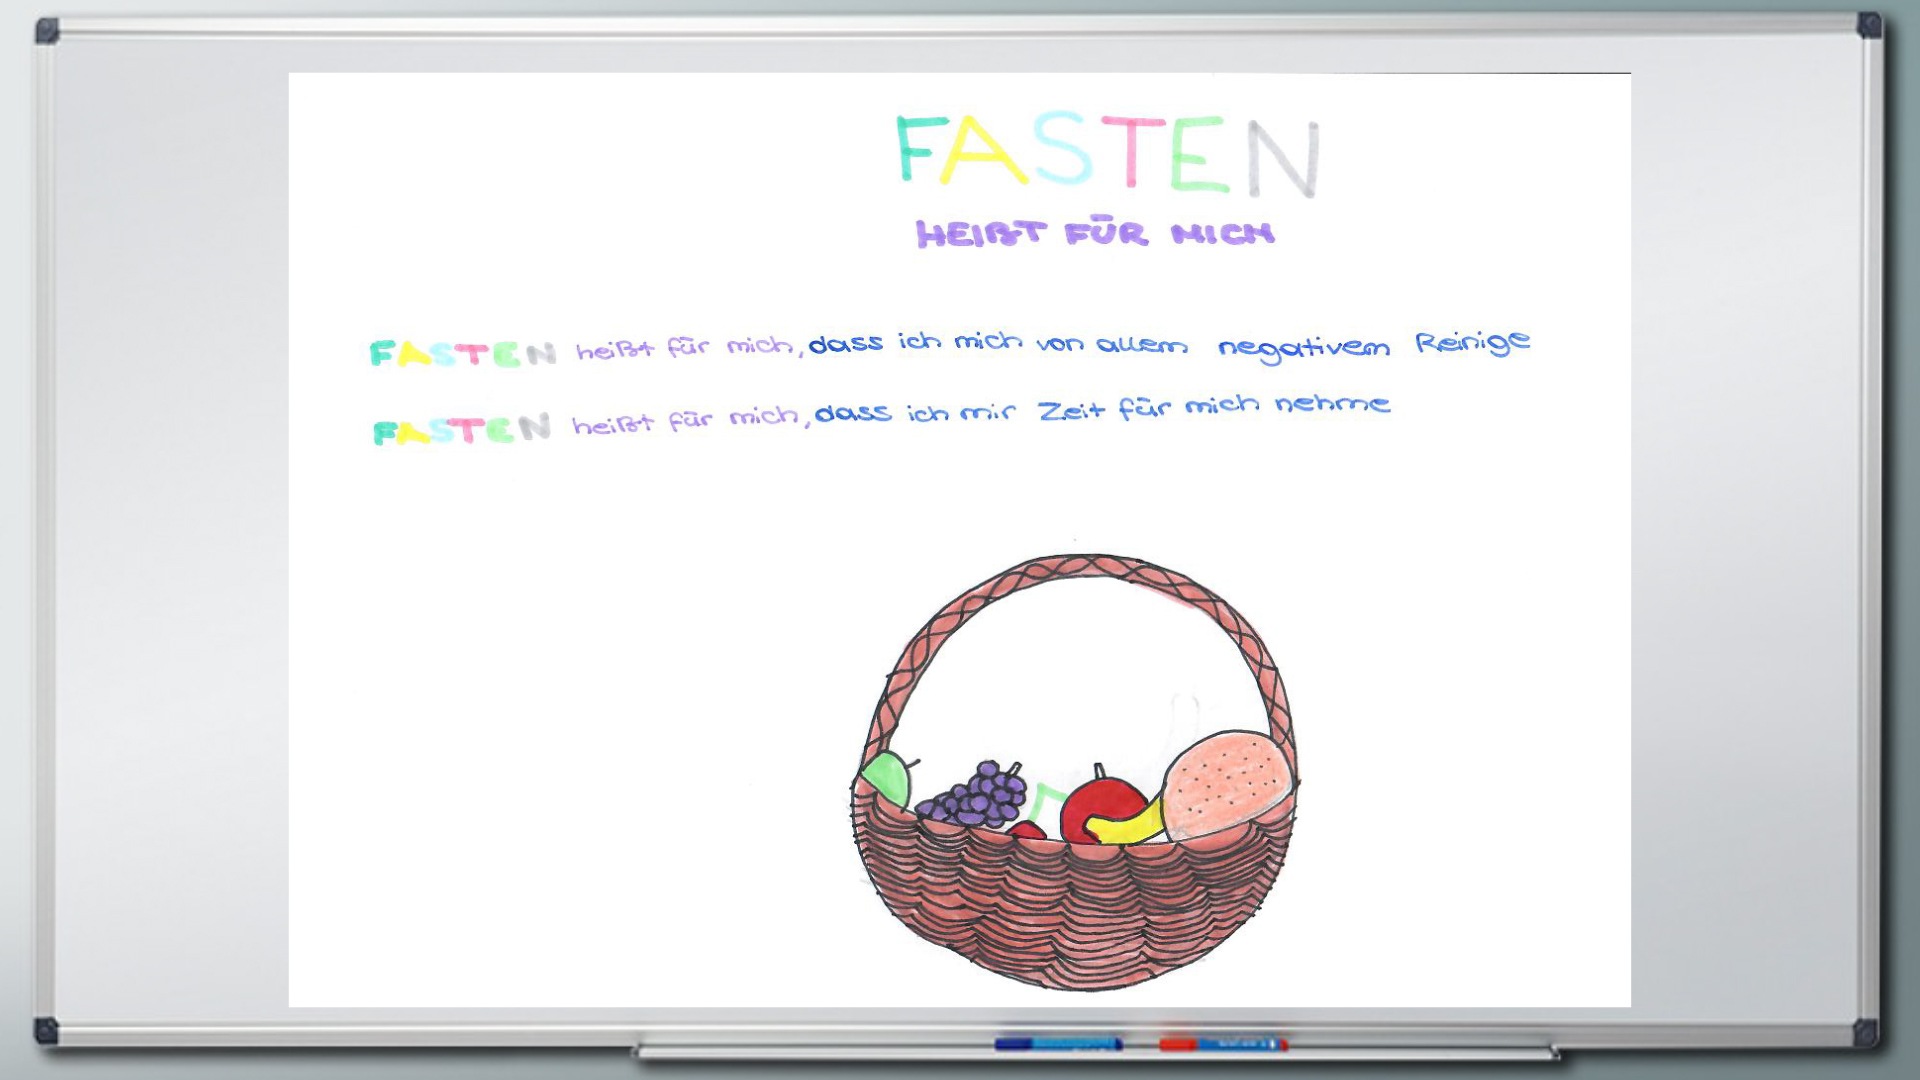 FASTEN
HEIßT FÜR MICH
FASTEN heißt für mich, dass ich mich von allem negativem Reinige
FASTEN heißt für mich, dass ich mir Zeit für mich nehme